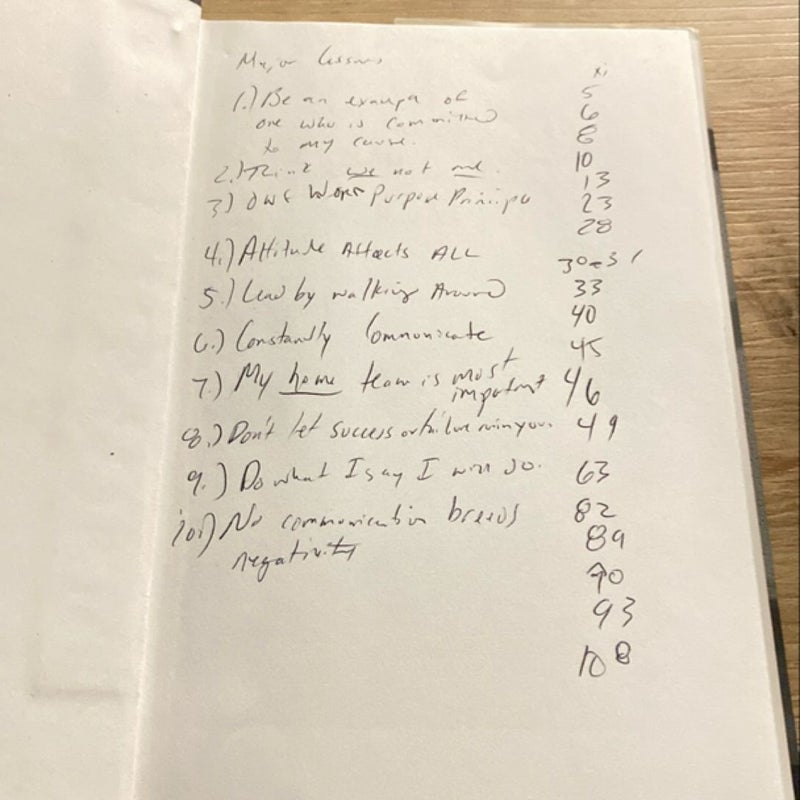 Major lessons
xi
1.) Be an exampl of
5
one who is committed
6
to my cause.
8
2.) Think we not me.
10
13
3) Purpose Principle
23
28
4.) Attitude Affects ALL
30-31
5.) Lead by walking Around
33
40
6.) Constantly Communicate
45
7.) My home team is most
important
46
8.) Don't let success or failure ruin you.
49
9.) Do what I say I will do.
63
10.) No communication breeds
82
negativity
89
90
93
108